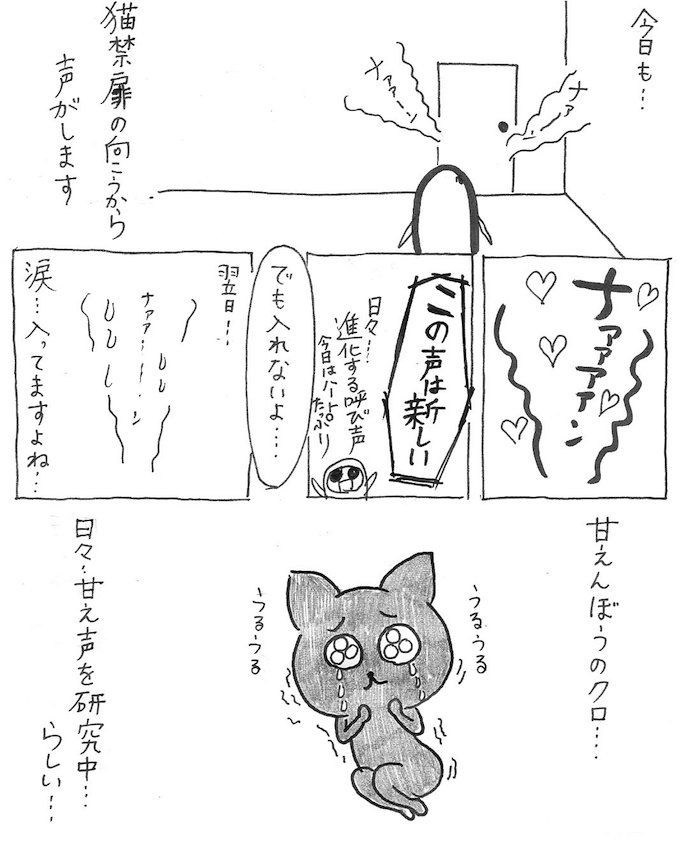 今日も…
ナァ…ン
ナァァーン
猫禁扉の向こうから
声がします
ナァァァァン
この声は新しい
日々…
進化する呼び声
今日はハート
たっぷり
でも入れないよ…
翌日…
ナァァ…ーン
涙…入ってますよね…
甘えんぼうのクロ…
うるうる
うるうる
日々…甘え声を研究中…
らしい…